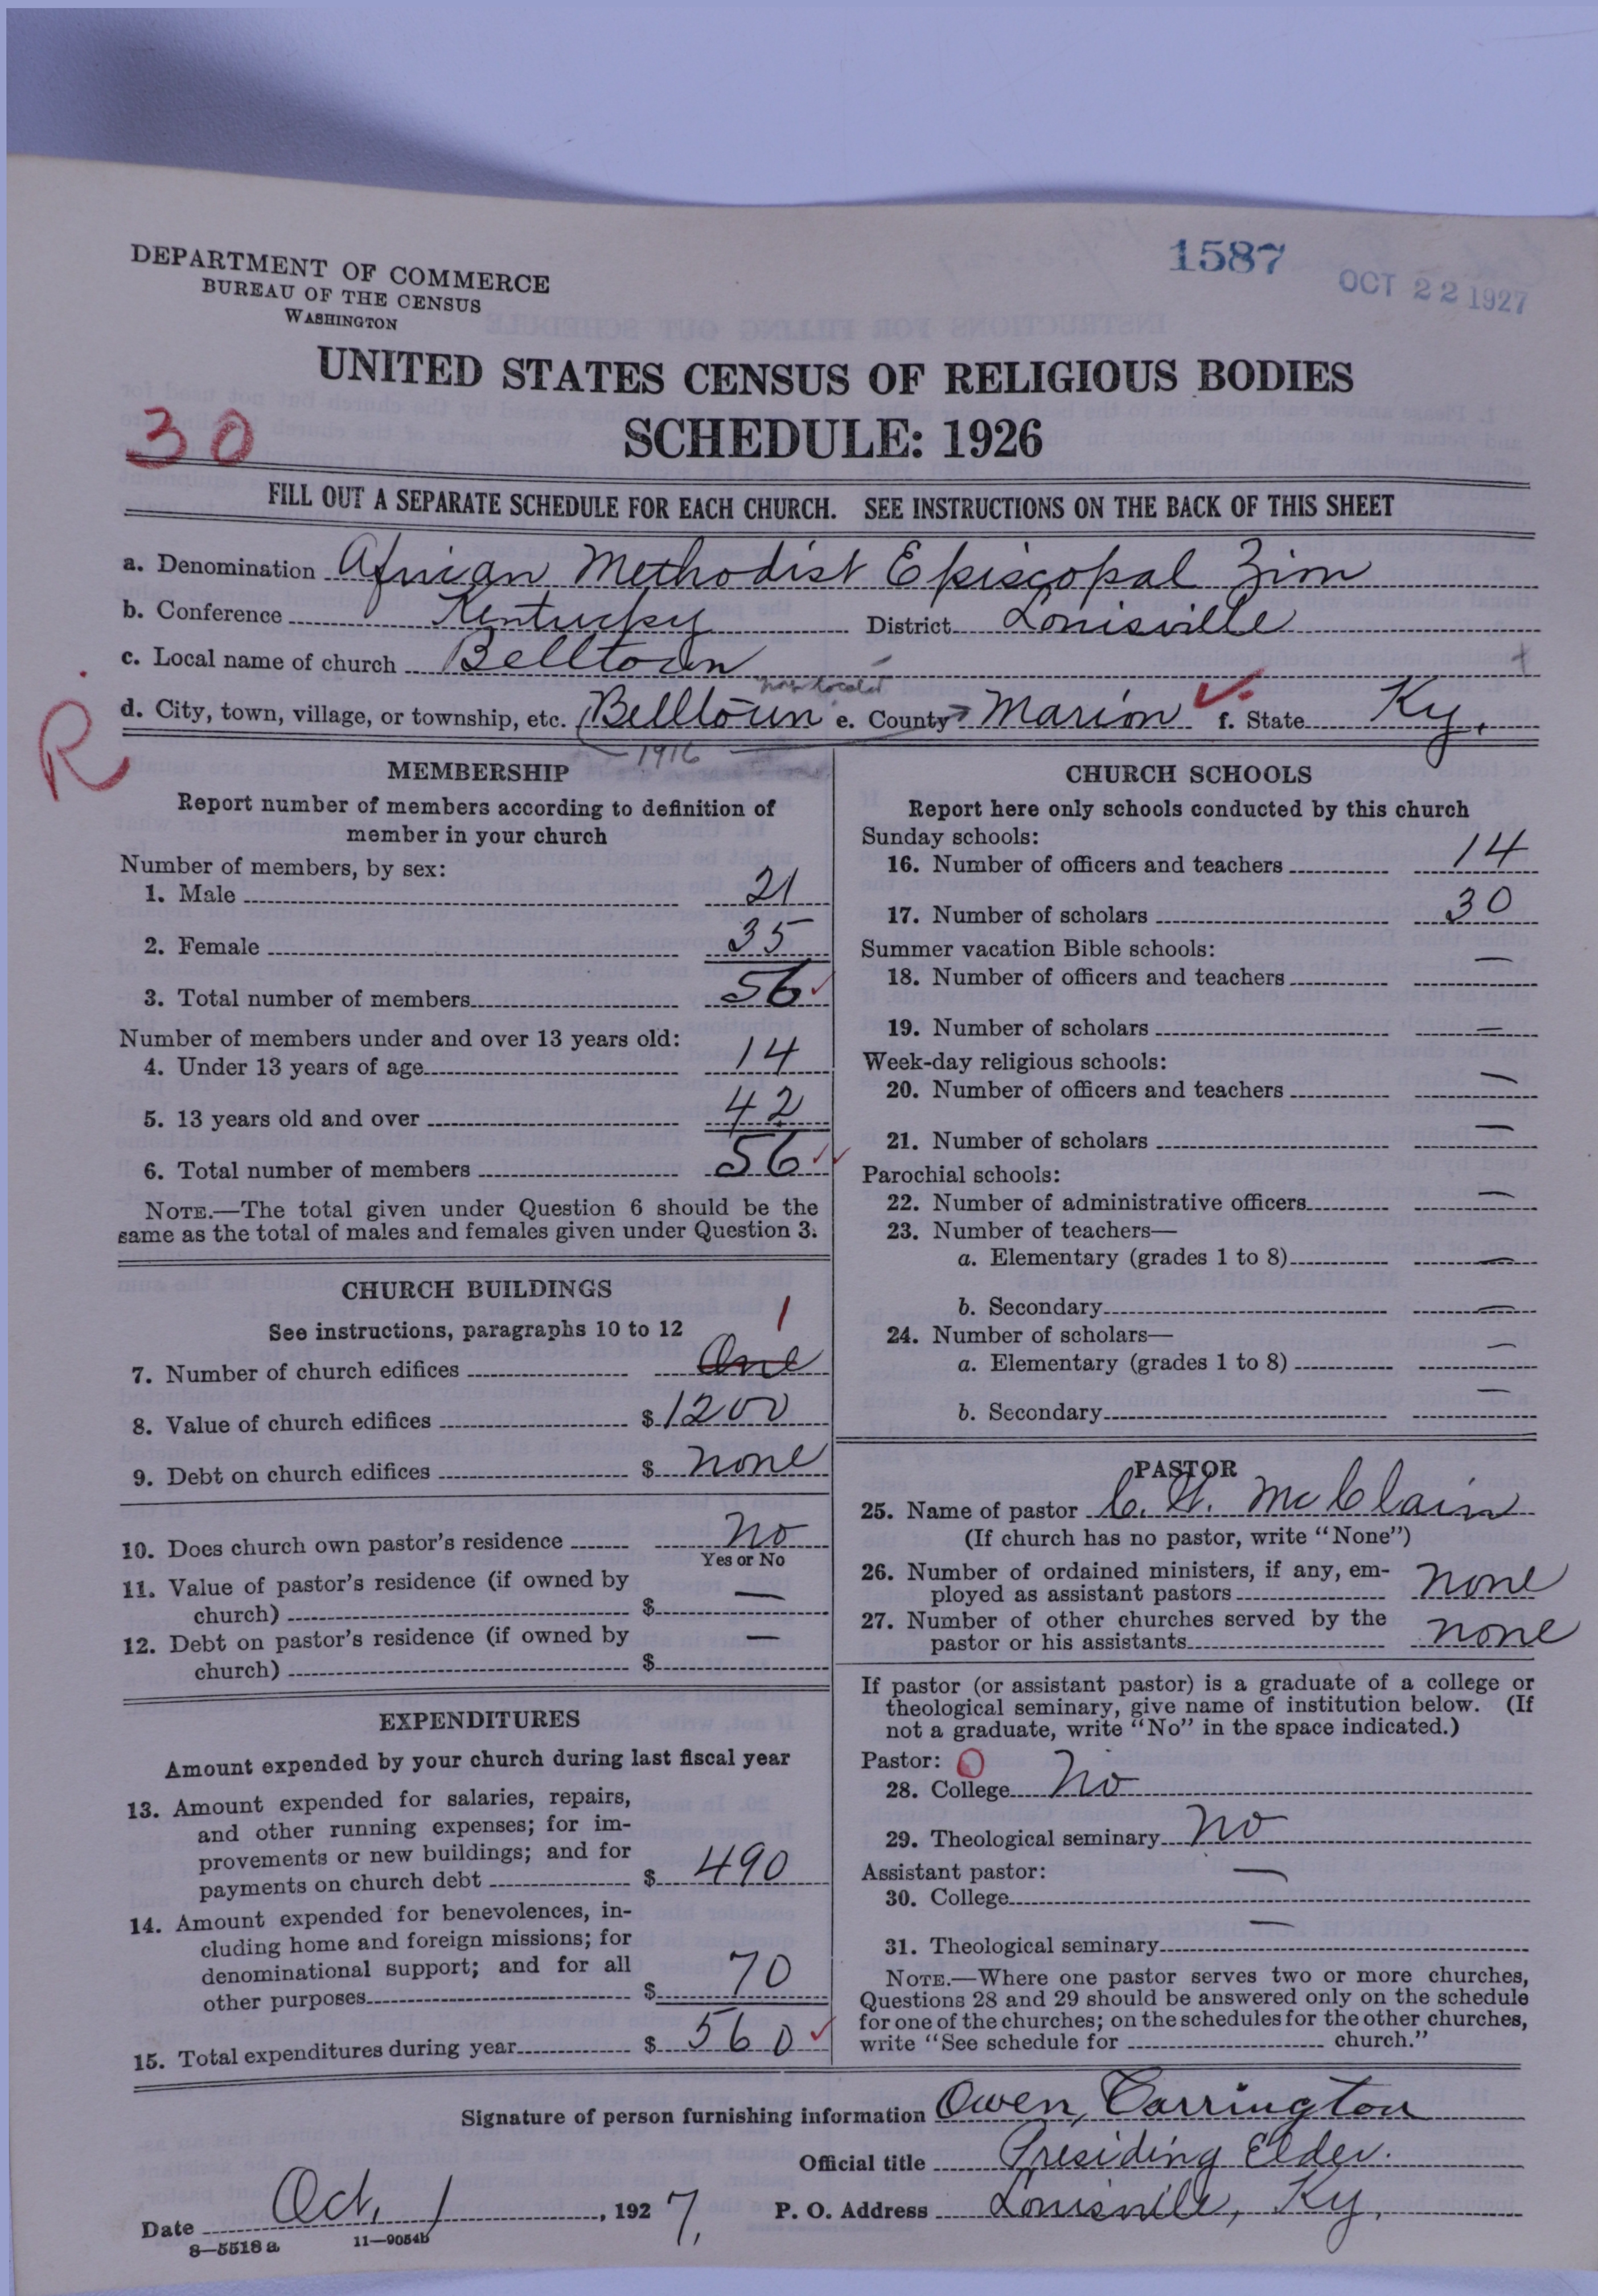 1587
OCT 22 1927
DEPARTMENT OF COMMERCE
BUREAU OF THE CENSUS
WASHINGTON
UNITED STATES CENSUS OF RELIGIOUS BODIES
SCHEDULE: 1926
30
FILL OUT A SEPARATE SCHEDULE FOR EACH CHURCH. SEE INSTRUCTIONS ON THE BACK OF THIS SHEET
a. Denomination African Methodist Episcopal Zion
b. Conference Kentucky District Louisville
c. Local name of church Belltown
now located
d. City, town, village, or township, etc. (Belltown e. County Marion f. State Ky.
1916
R
MEMBERSHIP
Report number of members according to definition of
member in your church
Number of members, by sex:
1. Male 21
2. Female 35
3. Total number of members 56
Number of members under and over 13 years old:
4. Under 13 years of age 14
5. 13 years old and over 42
6. Total number of members 56
NOTE.—The total given under Question 6 should be the
same as the total of males and females given under Question 3.
CHURCH BUILDINGS
See instructions, paragraphs 10 to 12
1
7. Number of church edifices One
8. Value of church edifices $ 1200
9. Debt on church edifices $ none
10. Does church own pastor's residence No
Yes or No
11. Value of pastor's residence (if owned by
church) $ —
12. Debt on pastor's residence (if owned by
church) $ —
EXPENDITURES
Amount expended by your church during last fiscal year
13. Amount expended for salaries, repairs,
and other running expenses; for im-
provements or new buildings; and for
payments on church debt $ 490
14. Amount expended for benevolences, in-
cluding home and foreign missions; for
denominational support; and for all
other purposes $ 70
15. Total expenditures during year $ 560
CHURCH SCHOOLS
Report here only schools conducted by this church
Sunday schools:
16. Number of officers and teachers 14
17. Number of scholars 30
Summer vacation Bible schools:
18. Number of officers and teachers —
19. Number of scholars —
Week-day religious schools:
20. Number of officers and teachers —
21. Number of scholars —
Parochial schools:
22. Number of administrative officers —
23. Number of teachers—
a. Elementary (grades 1 to 8) —
b. Secondary —
24. Number of scholars—
a. Elementary (grades 1 to 8) —
b. Secondary —
PASTOR
25. Name of pastor C. H. McClain
(If church has no pastor, write "None")
26. Number of ordained ministers, if any, em-
ployed as assistant pastors none
27. Number of other churches served by the
pastor or his assistants none
If pastor (or assistant pastor) is a graduate of a college or
theological seminary, give name of institution below. (If
not a graduate, write "No" in the space indicated.)
Pastor: 0
28. College No
29. Theological seminary No
Assistant pastor:
30. College —
31. Theological seminary —
NOTE.—Where one pastor serves two or more churches,
Questions 28 and 29 should be answered only on the schedule
for one of the churches; on the schedules for the other churches,
write "See schedule for church."
Signature of person furnishing information Owen Carrington
Official title Presiding Elder.
Date Oct. 1, 1927. P. O. Address Louisville, Ky.
8—5518 a 11—9054b